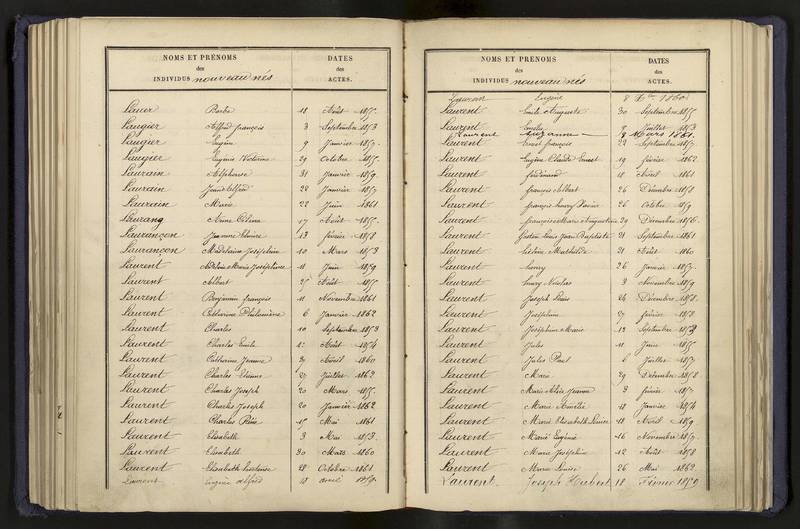 NOMS ET PRÉNOMS
des
INDIVIDUS nouveau nés
DATES
des
ACTES.
Lauer 18 Août
Laugier Alfred françois 3 Septembre 1853
Laugier Eugène 9 Janvier
Laugier Eugénie Victorine 29 Octobre
Laurain Alphonse 31 Janvier 1859
Laurain Alfred 22 Janvier
Laurain Marie 22 Juin 1861
Laurang Anne Célina 17 Août
Laurançon Jeanne 13 février 1858
Laurançon Madelaine Joséphine 10 Mars 1853
Laurent Marie Joséphine 11 Juin 1859
Laurent Albert Août
Laurent Benjamin françois 11 Novembre 1861
Laurent Catherine Philomène 6 Janvier 1862
Laurent Charles 10 Septembre 1853
Laurent Charles Emile Août 1854
Laurent Catherine Jeanne Avril 1860
Laurent Charles Etienne 27 Juillet 1862
Laurent Charles Joseph 20 Mars
Laurent Charles Joseph 20 Janvier 1862
Laurent Charles Mai 1861
Laurent Elisabeth 3 Mai 1853
Laurent Elisabeth 30 Mars 1860
Laurent Elisabeth 28 Octobre 1861
Laurent Eugène alfred 18 avril
NOMS ET PRÉNOMS
des
INDIVIDUS nouveau nés
DATES
des
ACTES.
Laurent Eugène 8 1860
Laurent Emile Auguste 30 Septembre
Laurent 8 Juillet 1853
Laurent Suzanne 8 Mars 1861
Laurent Ernest françois 22 Septembre
Laurent Eugène Claude Ernest 19 février 1862
Laurent ferdinand 18 Avril 1861
Laurent françois Albert 26 Décembre 1858
Laurent françois henry Xavier 26 Octobre 1859
Laurent françois Marie Augustin 29 Décembre 1856
Laurent Gaston Louis Jean Baptiste 21 Septembre 1861
Laurent Mathilde 21 Août 1860
Laurent henry 26 Janvier
Laurent henry Nicolas 3 Novembre 1859
Laurent Joseph Louis 24 Décembre 1858
Laurent Joséphine 27 février 1858
Laurent Joséphine Marie 13 Septembre 1853
Laurent Jules 11 Juin
Laurent Jules Paul 6 Juillet
Laurent Marie 29 Décembre 1858
Laurent Marie Jeanne 3 février
Laurent Marie Amélie 18 Janvier 1854
Laurent Marie Elisabeth Louise 18 Avril 1859
Laurent Marie Eugénie 16 Novembre
Laurent Marie Joséphine 12 Août 1858
Laurent Marie Louise 26 Mai 1862
Laurent Joseph Hubert 18 Février 1859